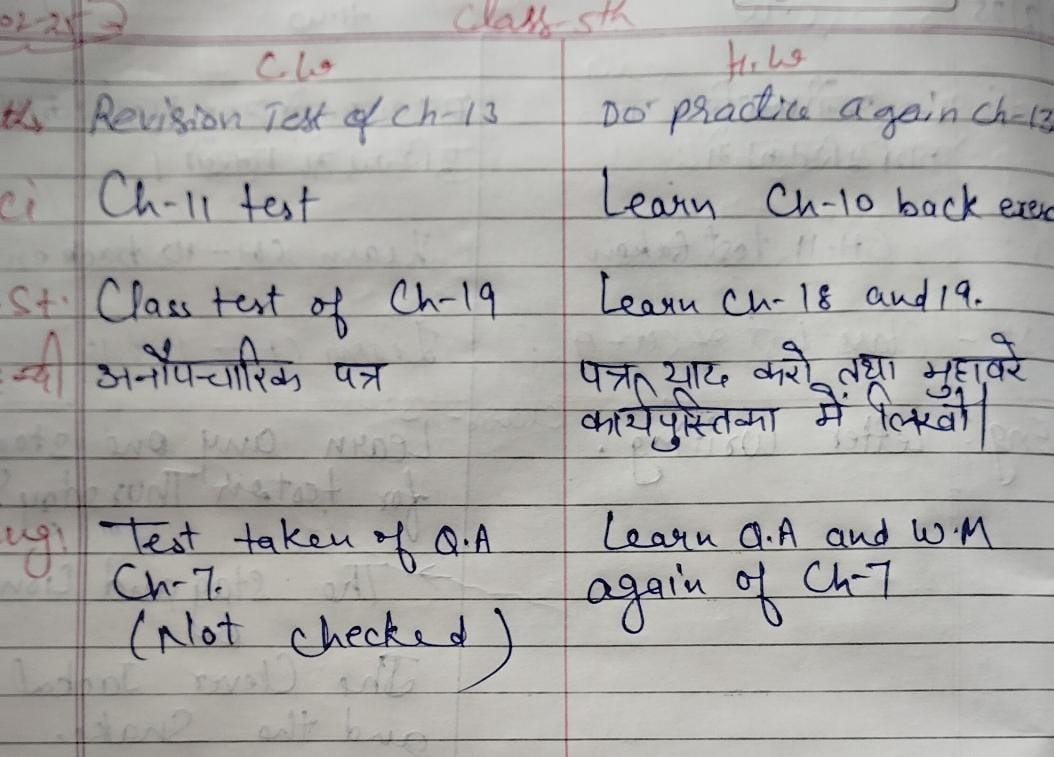 02-25 Class-5th
C.W H.W
ths Revision Test of Ch-13 Do practice again Ch-13
ci Ch-11 test Learn Ch-10 back exerc
St. Class test of Ch-19 Learn Ch-18 and 19.
न्दी अनौपचारिक पत्र पत्र याद करो तथा मुहावरे
कार्यपुस्तिका में लिखो।
ng. Test taken of Q.A Learn Q.A and W.M
Ch-7. again of Ch-7
(Not checked)